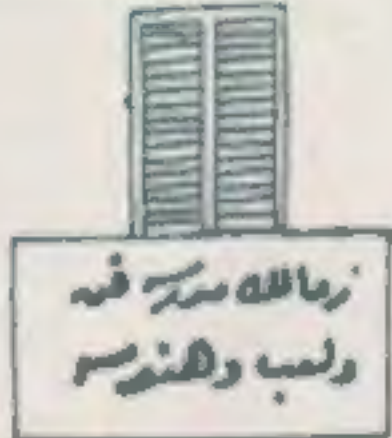 زمالك مدرسه فن
ولعب وهندسه